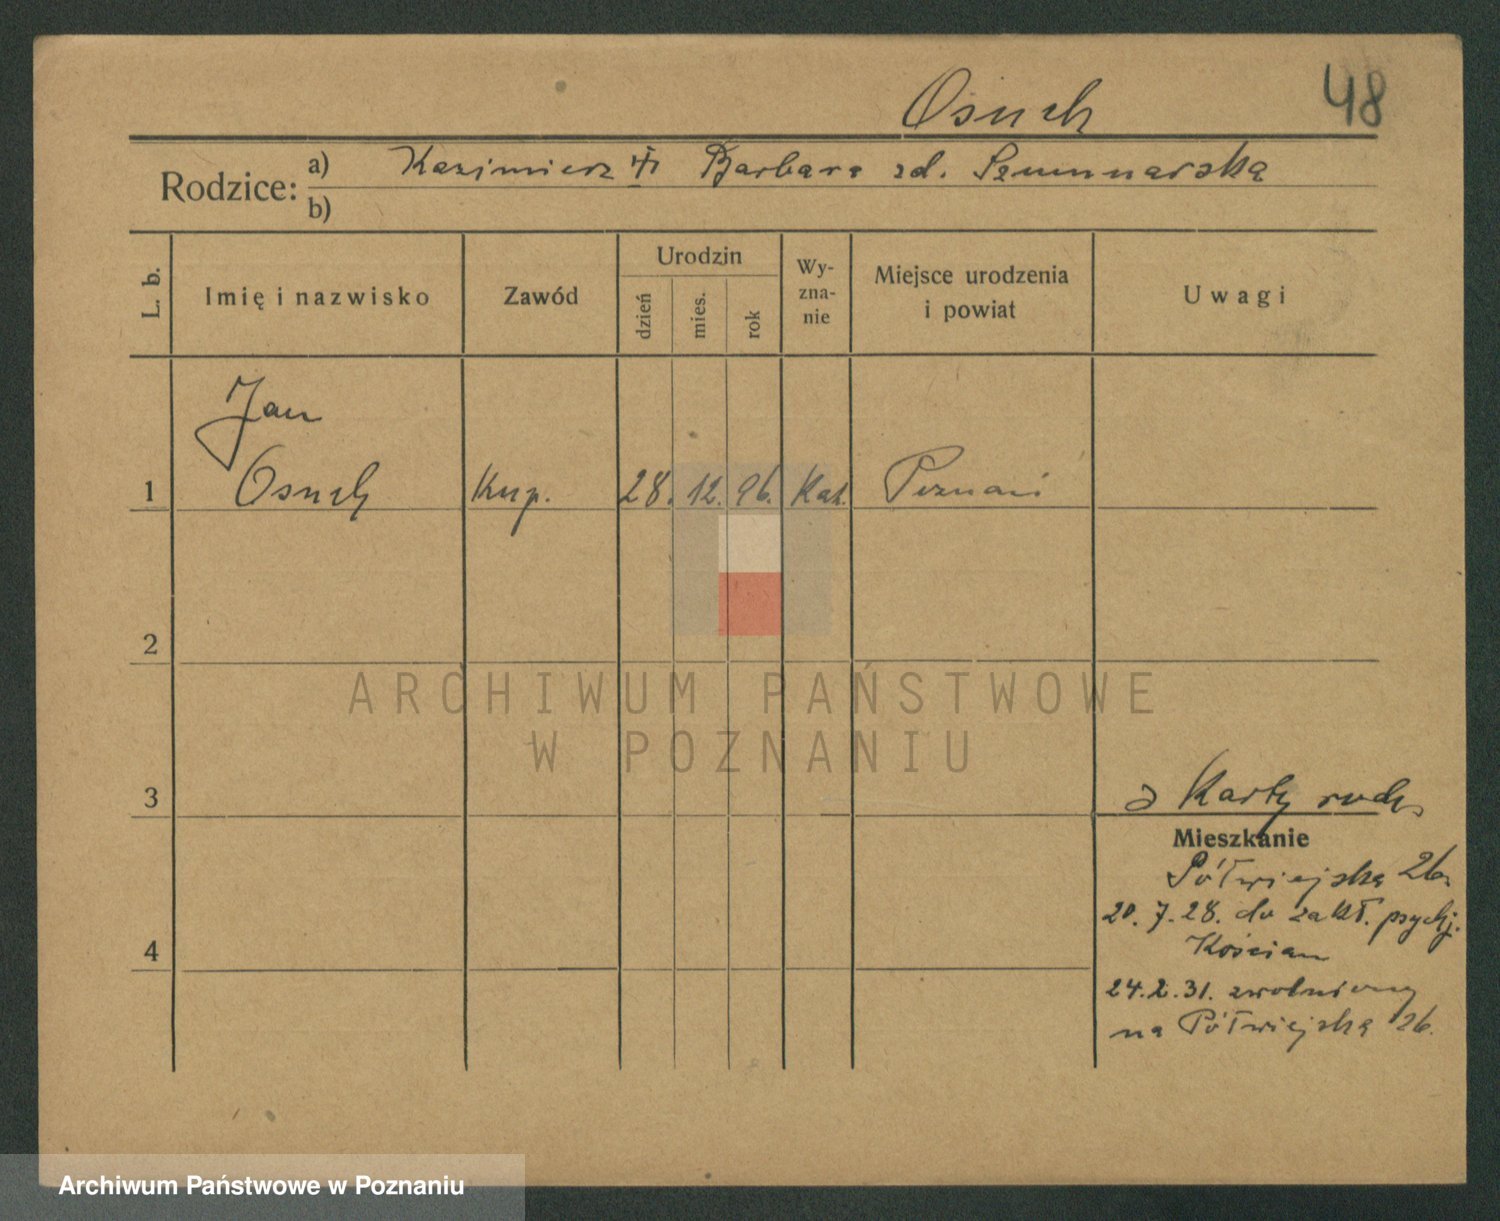 Osuch 48
Rodzice: a) Kazimierz Barbara zd.
b)
L. b.
Imię i nazwisko
Zawód
Urodzin
dzień
mies.
rok
Wy-
zna-
nie
Miejsce urodzenia
i powiat
Uwagi
Jan
1 Osuch Kup. 28. 12. 96. Kat. Poznań
2
ARCHIWUM PAŃSTWOWE
W POZNANIU
3
z Karty rodz.
Mieszkanie
Półwiejska 26.
20. 7. 28. do zakł. psych.
Kościan
4
24. 2. 31. zwolniony
na Półwiejską 26.
Archiwum Państwowe w Poznaniu